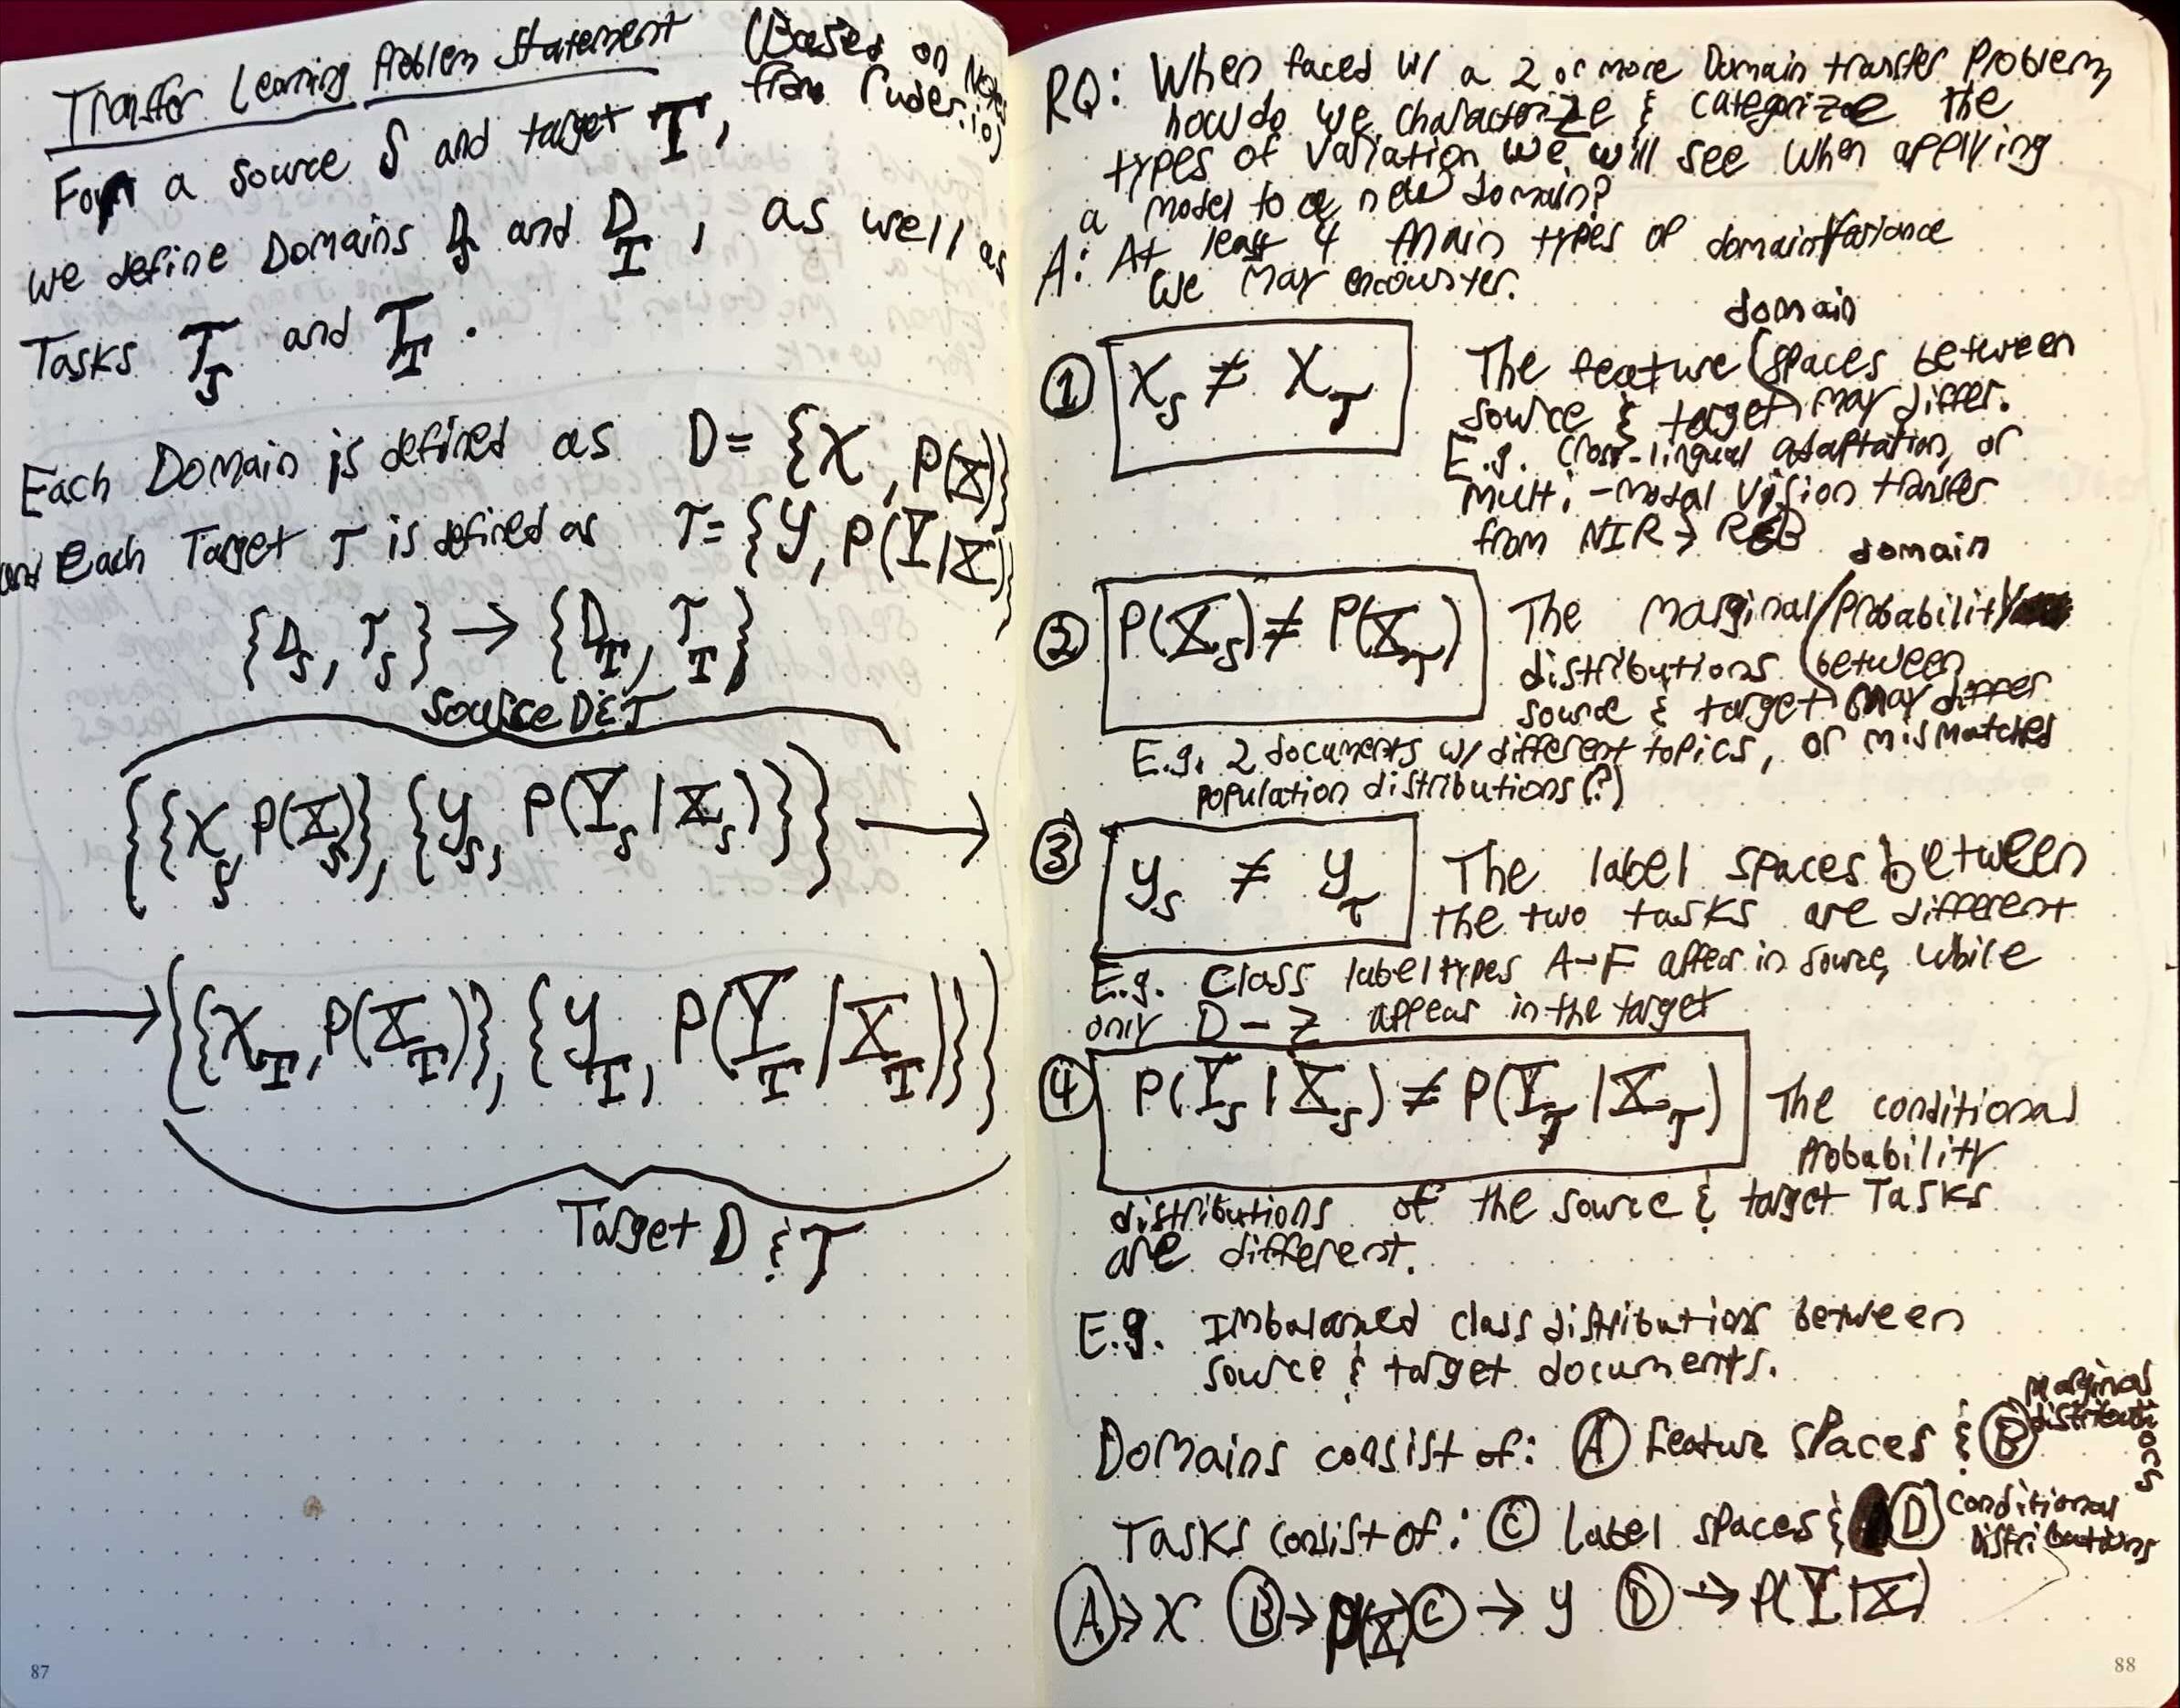 Transfer Learning Problem Statement (Based on Notes
from ruder.io)
For a source S and target T,
we define Domains D_S and D_T, as well as
Tasks T_S and T_T.
Each Domain is defined as D = {X, P(X)}
and each Target T is defined as T = {Y, P(Y|X)}
{D_S, T_S} → {D_T, T_T}
Source D & T
{{X_S, P(X_S)}, {Y_S, P(Y_S|X_S)}} →
→ {{X_T, P(X_T)}, {Y_T, P(Y_T|X_T)}}
Target D & T
87
RQ: When faced w/ a 2 or more Domain transfer Problem,
how do we characterize & categorize the
types of variation we will see when applying
a model to a new domain?
A: At least 4 main types of domain variance
we may encounter.
① X_S ≠ X_T
domain
The feature spaces between
source & target may differ.
E.g. Cross-lingual adaptation, or
multi-modal vision transfer
from NIR → RGB
② P(X_S) ≠ P(X_T)
domain
The marginal probability
distributions between
source & target may differ
E.g. 2 documents w/ different topics, or mismatched
population distributions (?)
③ Y_S ≠ Y_T
The label spaces between
the two tasks are different
E.g. Class label types A-F appear in source, while
only D - Z appear in the target
④ P(Y_S|X_S) ≠ P(Y_T|X_T)
The conditional
probability
distributions of the source & target Tasks
are different.
E.g. Imbalanced class distributions between
source & target documents.
Domains consist of: Ⓐ Feature spaces & Ⓑ marginal
distributions
Tasks consist of: Ⓒ label spaces & Ⓓ conditional
distributions
Ⓐ → X Ⓑ → P(X) Ⓒ → Y Ⓓ → P(Y|X)
88